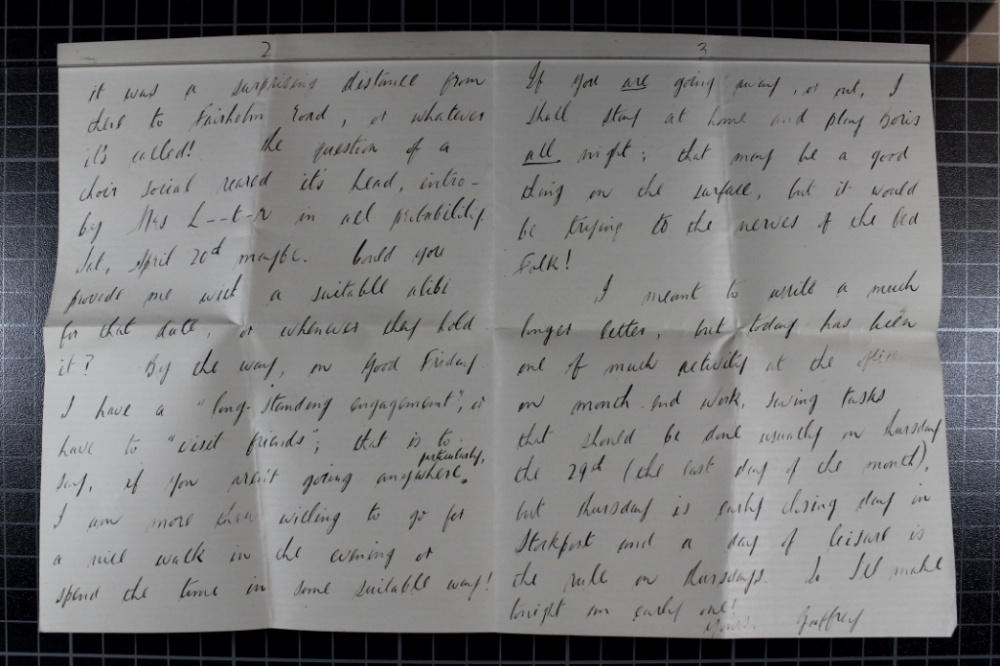 2
it was a surprising distance from
there to Fairholm Road, or whatever
it's called! the question of a
choir social reared it's head, intro-
by Mrs L--t-r in all probability
Sat, April 20th maybe. Could you
provide me with a suitable alibi
for that date, or whenever they hold
it? By the way, on Good Friday
I have a "long-standing engagement", or
have to "visit friends"; that is to
say, if you aren't going anywhere particularly.
I am more than willing to go for
a nice walk in the evening or
spend the time in some suitable way!
3
If you are going away, or out, I
shall stay at home and play Boris
all night; that may be a good
thing on the surface, but it would
be trying to the nerves of the Bed
Folk!
I meant to write a much
longer letter, but today has been
one of much activity at the office
on month-end work, tasks
that should be done usually on Thursday
the 29th (the last day of the month),
but Thursday is early closing day in
Stockport and a day of leisure is
the rule on Thursdays. So I'll make
tonight an early one!
Yours, Geoffrey